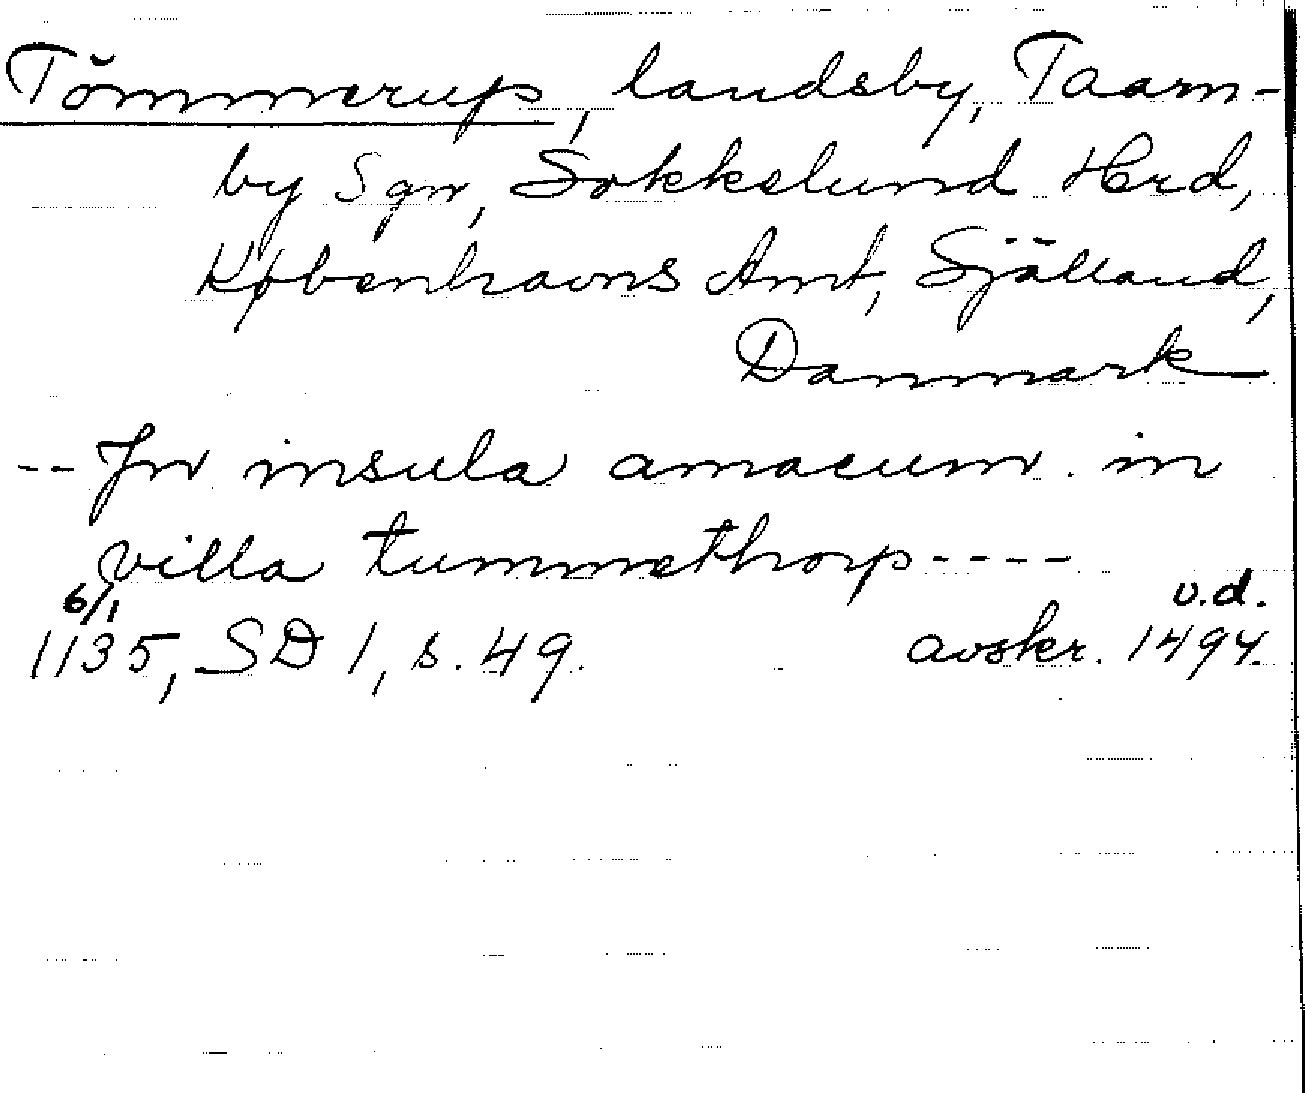 Tömmerup, landsby, Taarn-
by Sgn, Sokkelund Hrd,
Københavns Amt, Själland,
Danmark
-- In insula amacum. in
villa tummethorp----
6/1 u.d.
1135, SD 1, s. 49. avskr. 1494.